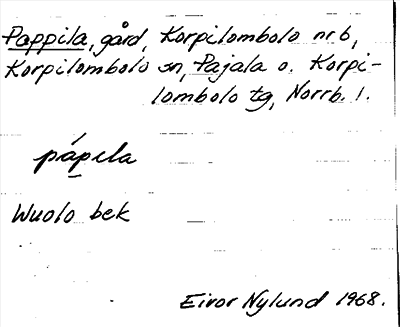 Pappila, gård, Korpilombolo nr 6,
Korpilombolo sn, Pajala o. Korpi-
lombolo tg, Norrb. l.
pápela
Wuolo bek
Eivor Nylund 1968.